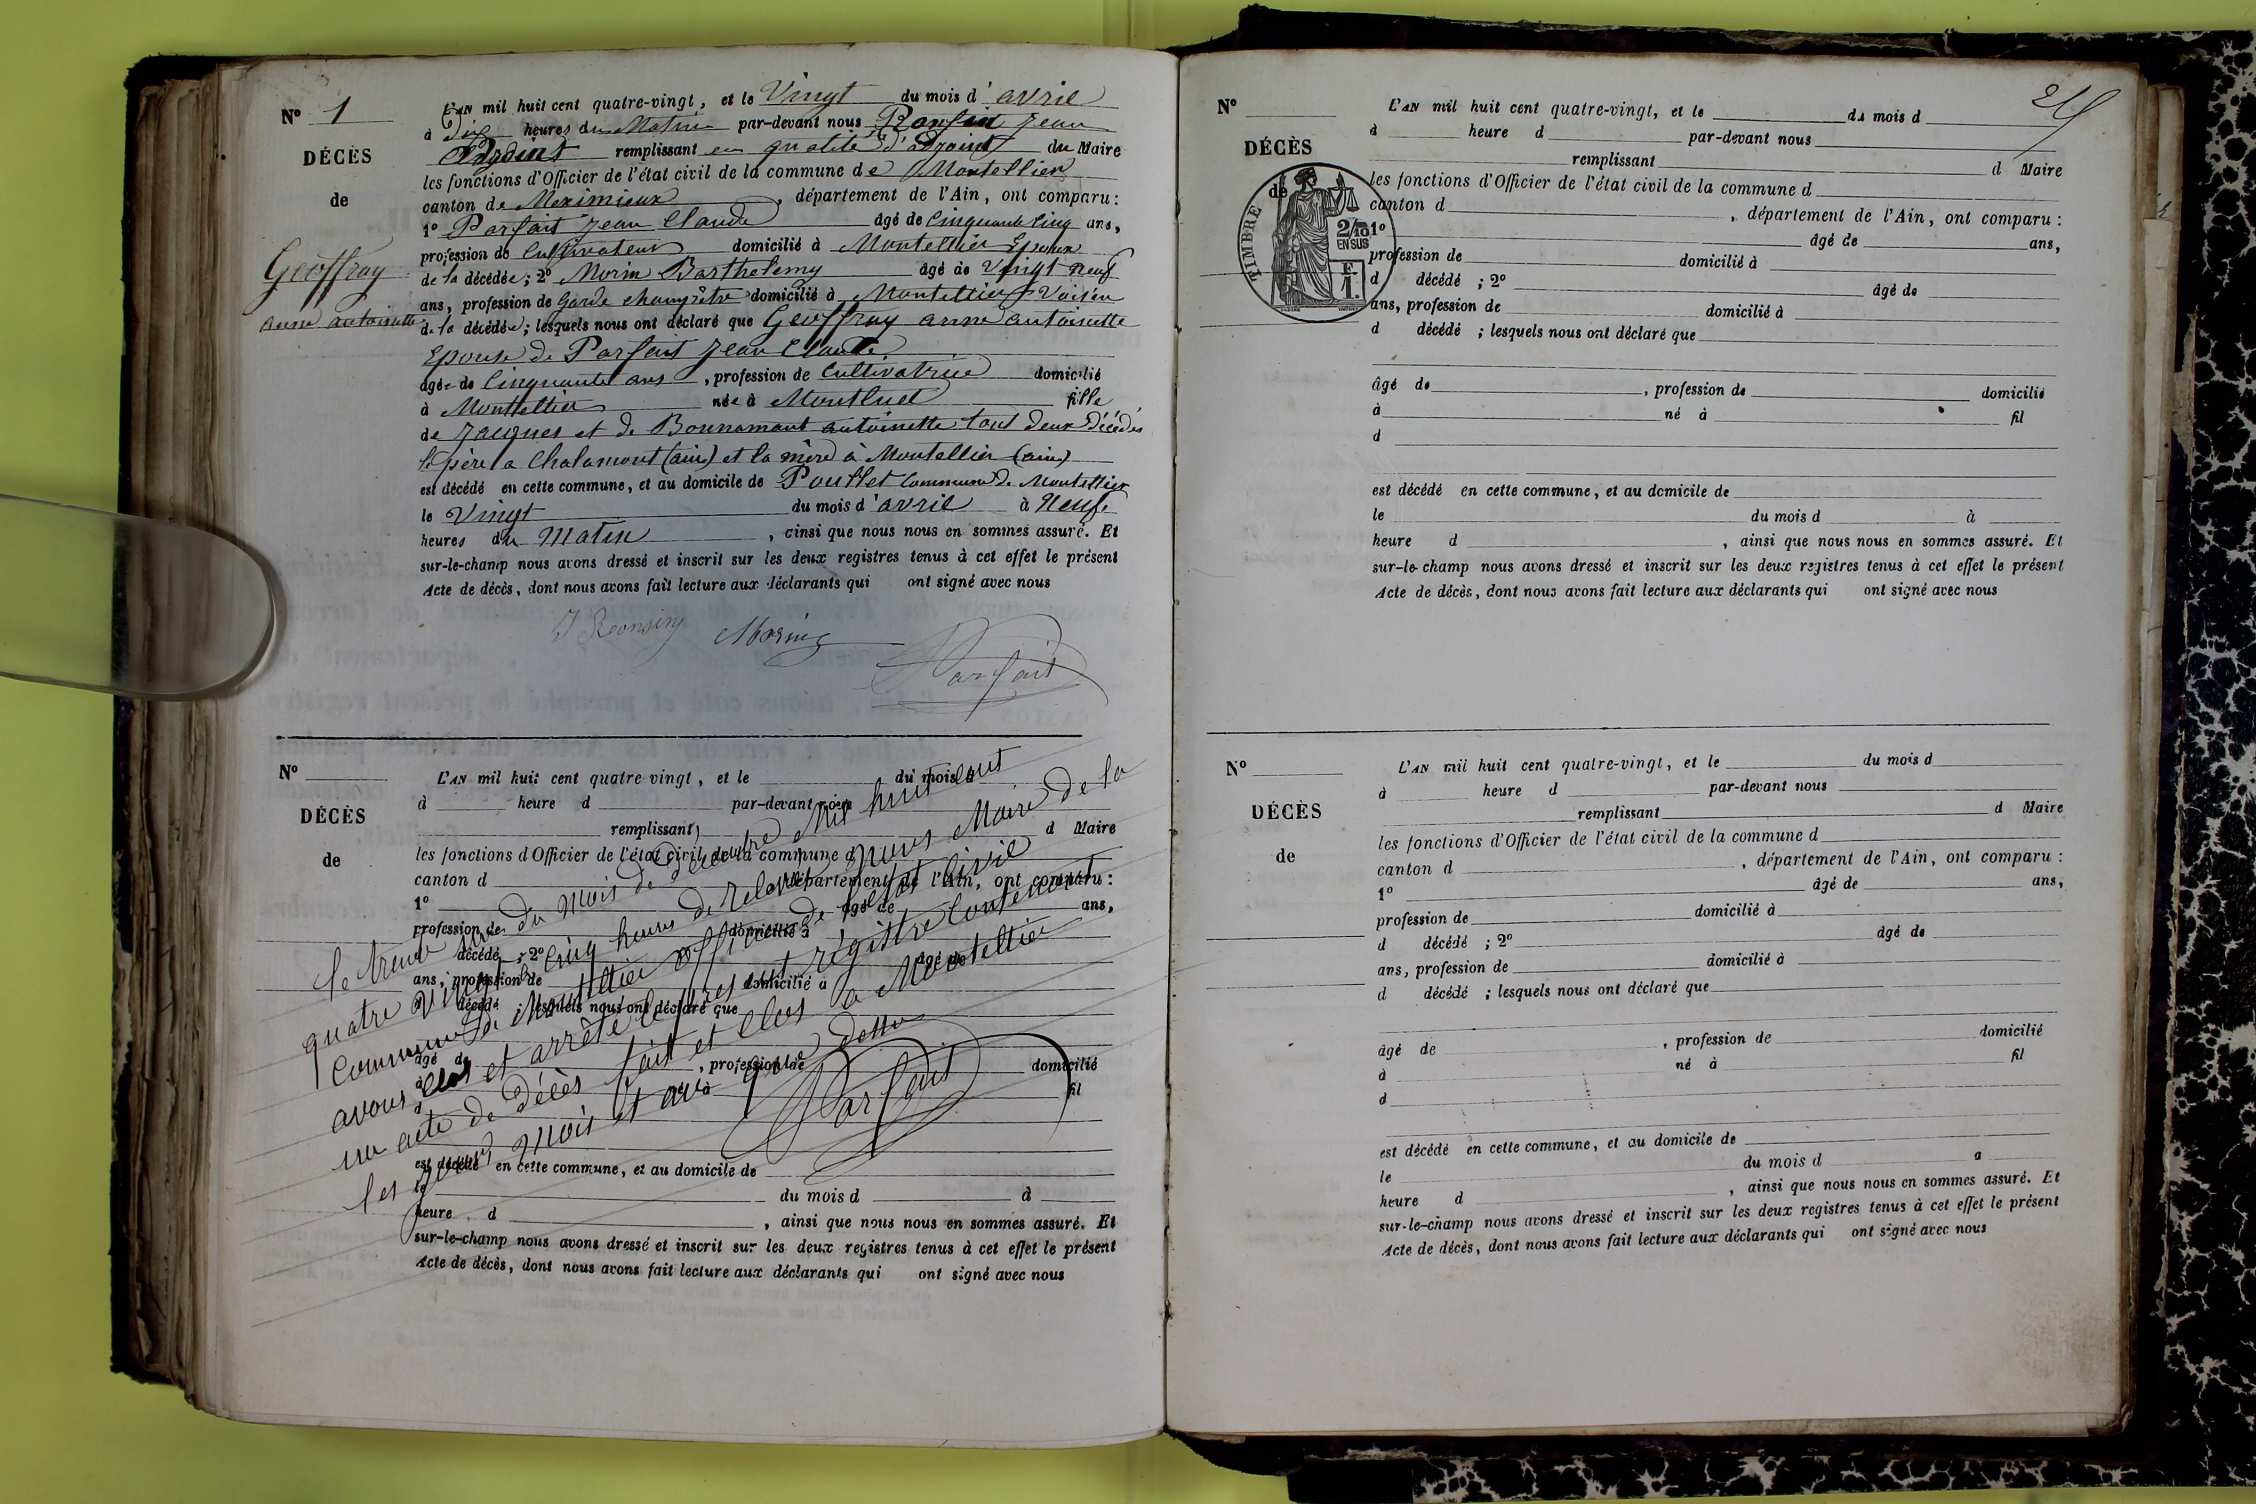 N° 1
DÉCÈS
de
Geoffray
anne antoinette
L'AN mil huit cent quatre-vingt, et le Vingt du mois d'avril
à Dix heures du Matin par-devant nous Ronsin Jean
Adjoint remplissant en qualité d'adjoint du Maire
les fonctions d'Officier de l'état civil de la commune de Montellier
canton de Meximieux, département de l'Ain, ont comparu:
1° Parfait Jean Claude âgé de Cinquante Cinq ans,
profession de Cultivateur domicilié à Montellier Epoux
de la décédée; 2° Morin Barthelemy âgé de Vingt neuf
ans, profession de Garde champêtre domicilié à Montellier Voisin
de la décédée; lesquels nous ont déclaré que Geoffray anne antoinette
Epouse de Parfait Jean Claude
âgée de Cinquante ans, profession de Cultivatrice domicilié
à Montellier née à Montluel fille
de Jacques et de Bonnamant antoinette tous deux Décédés
le père a Chalamont (ain) et la mère à Montellier (ain)
est décédé en cette commune, et au domicile de Commune de Montellier
le Vingt du mois d'avril à Neuf
heures du Matin, ainsi que nous nous en sommes assuré. Et
sur-le-champ nous avons dressé et inscrit sur les deux registres tenus à cet effet le présent
Acte de décès, dont nous avons fait lecture aux déclarants qui ont signé avec nous
J Ronsin Morin
Parfait
N°
DÉCÈS
de
L'AN mil huit cent quatre-vingt, et le du mois d
à heure d par-devant nous
remplissant d Maire
les fonctions d'Officier de l'état civil de la commune d
canton d département de l'Ain, ont comparu:
1° âgé de ans,
profession de domicilié à
d décédé ; 2° âgé de
ans, profession de domicilié à
d décédé ; lesquels nous ont déclaré que
âgé de , profession de domicilié
à né à fil
d
est décédé en cette commune, et au domicile de
le du mois d à
heure d , ainsi que nous nous en sommes assuré. Et
sur-le-champ nous avons dressé et inscrit sur les deux registres tenus à cet effet le présent
Acte de décès, dont nous avons fait lecture aux déclarants qui ont signé avec nous
Le trente un du mois de Décembre Mil huit cent
quatre vingt à Cinq heures de relevé nous Maire de la
Commune de Montellier officier de l'état civil
avons clos et arrêté le présent régistre contenant
un acte de décès fait et clos à Montellier
les jours mois et an que dessus
Parfait
N°
DÉCÈS
de
TIMBRE
2/10
EN SUS
F.
1.
L'AN mil huit cent quatre-vingt, et le du mois d
à heure d par-devant nous
remplissant d Maire
les fonctions d'Officier de l'état civil de la commune d
canton d , département de l'Ain, ont comparu :
1° âgé de ans,
profession de domicilié à
d décédé ; 2° âgé de
ans, profession de domicilié à
d décédé ; lesquels nous ont déclaré que
âgé de , profession de domicilié
à né à fil
d
est décédé en cette commune, et au domicile de
le du mois d à
heure d , ainsi que nous nous en sommes assuré. Et
sur-le-champ nous avons dressé et inscrit sur les deux registres tenus à cet effet le présent
Acte de décès, dont nous avons fait lecture aux déclarants qui ont signé avec nous
N°
DÉCÈS
de
L'AN mil huit cent quatre-vingt, et le du mois d
à heure d par-devant nous
remplissant d Maire
les fonctions d'Officier de l'état civil de la commune d
canton d , département de l'Ain, ont comparu :
1° âgé de ans,
profession de domicilié à
d décédé ; 2° âgé de
ans, profession de domicilié à
d décédé ; lesquels nous ont déclaré que
âgé de , profession de domicilié
à né à fil
d
est décédé en cette commune, et au domicile de
le du mois d à
heure d , ainsi que nous nous en sommes assuré. Et
sur-le-champ nous avons dressé et inscrit sur les deux registres tenus à cet effet le présent
Acte de décès, dont nous avons fait lecture aux déclarants qui ont signé avec nous